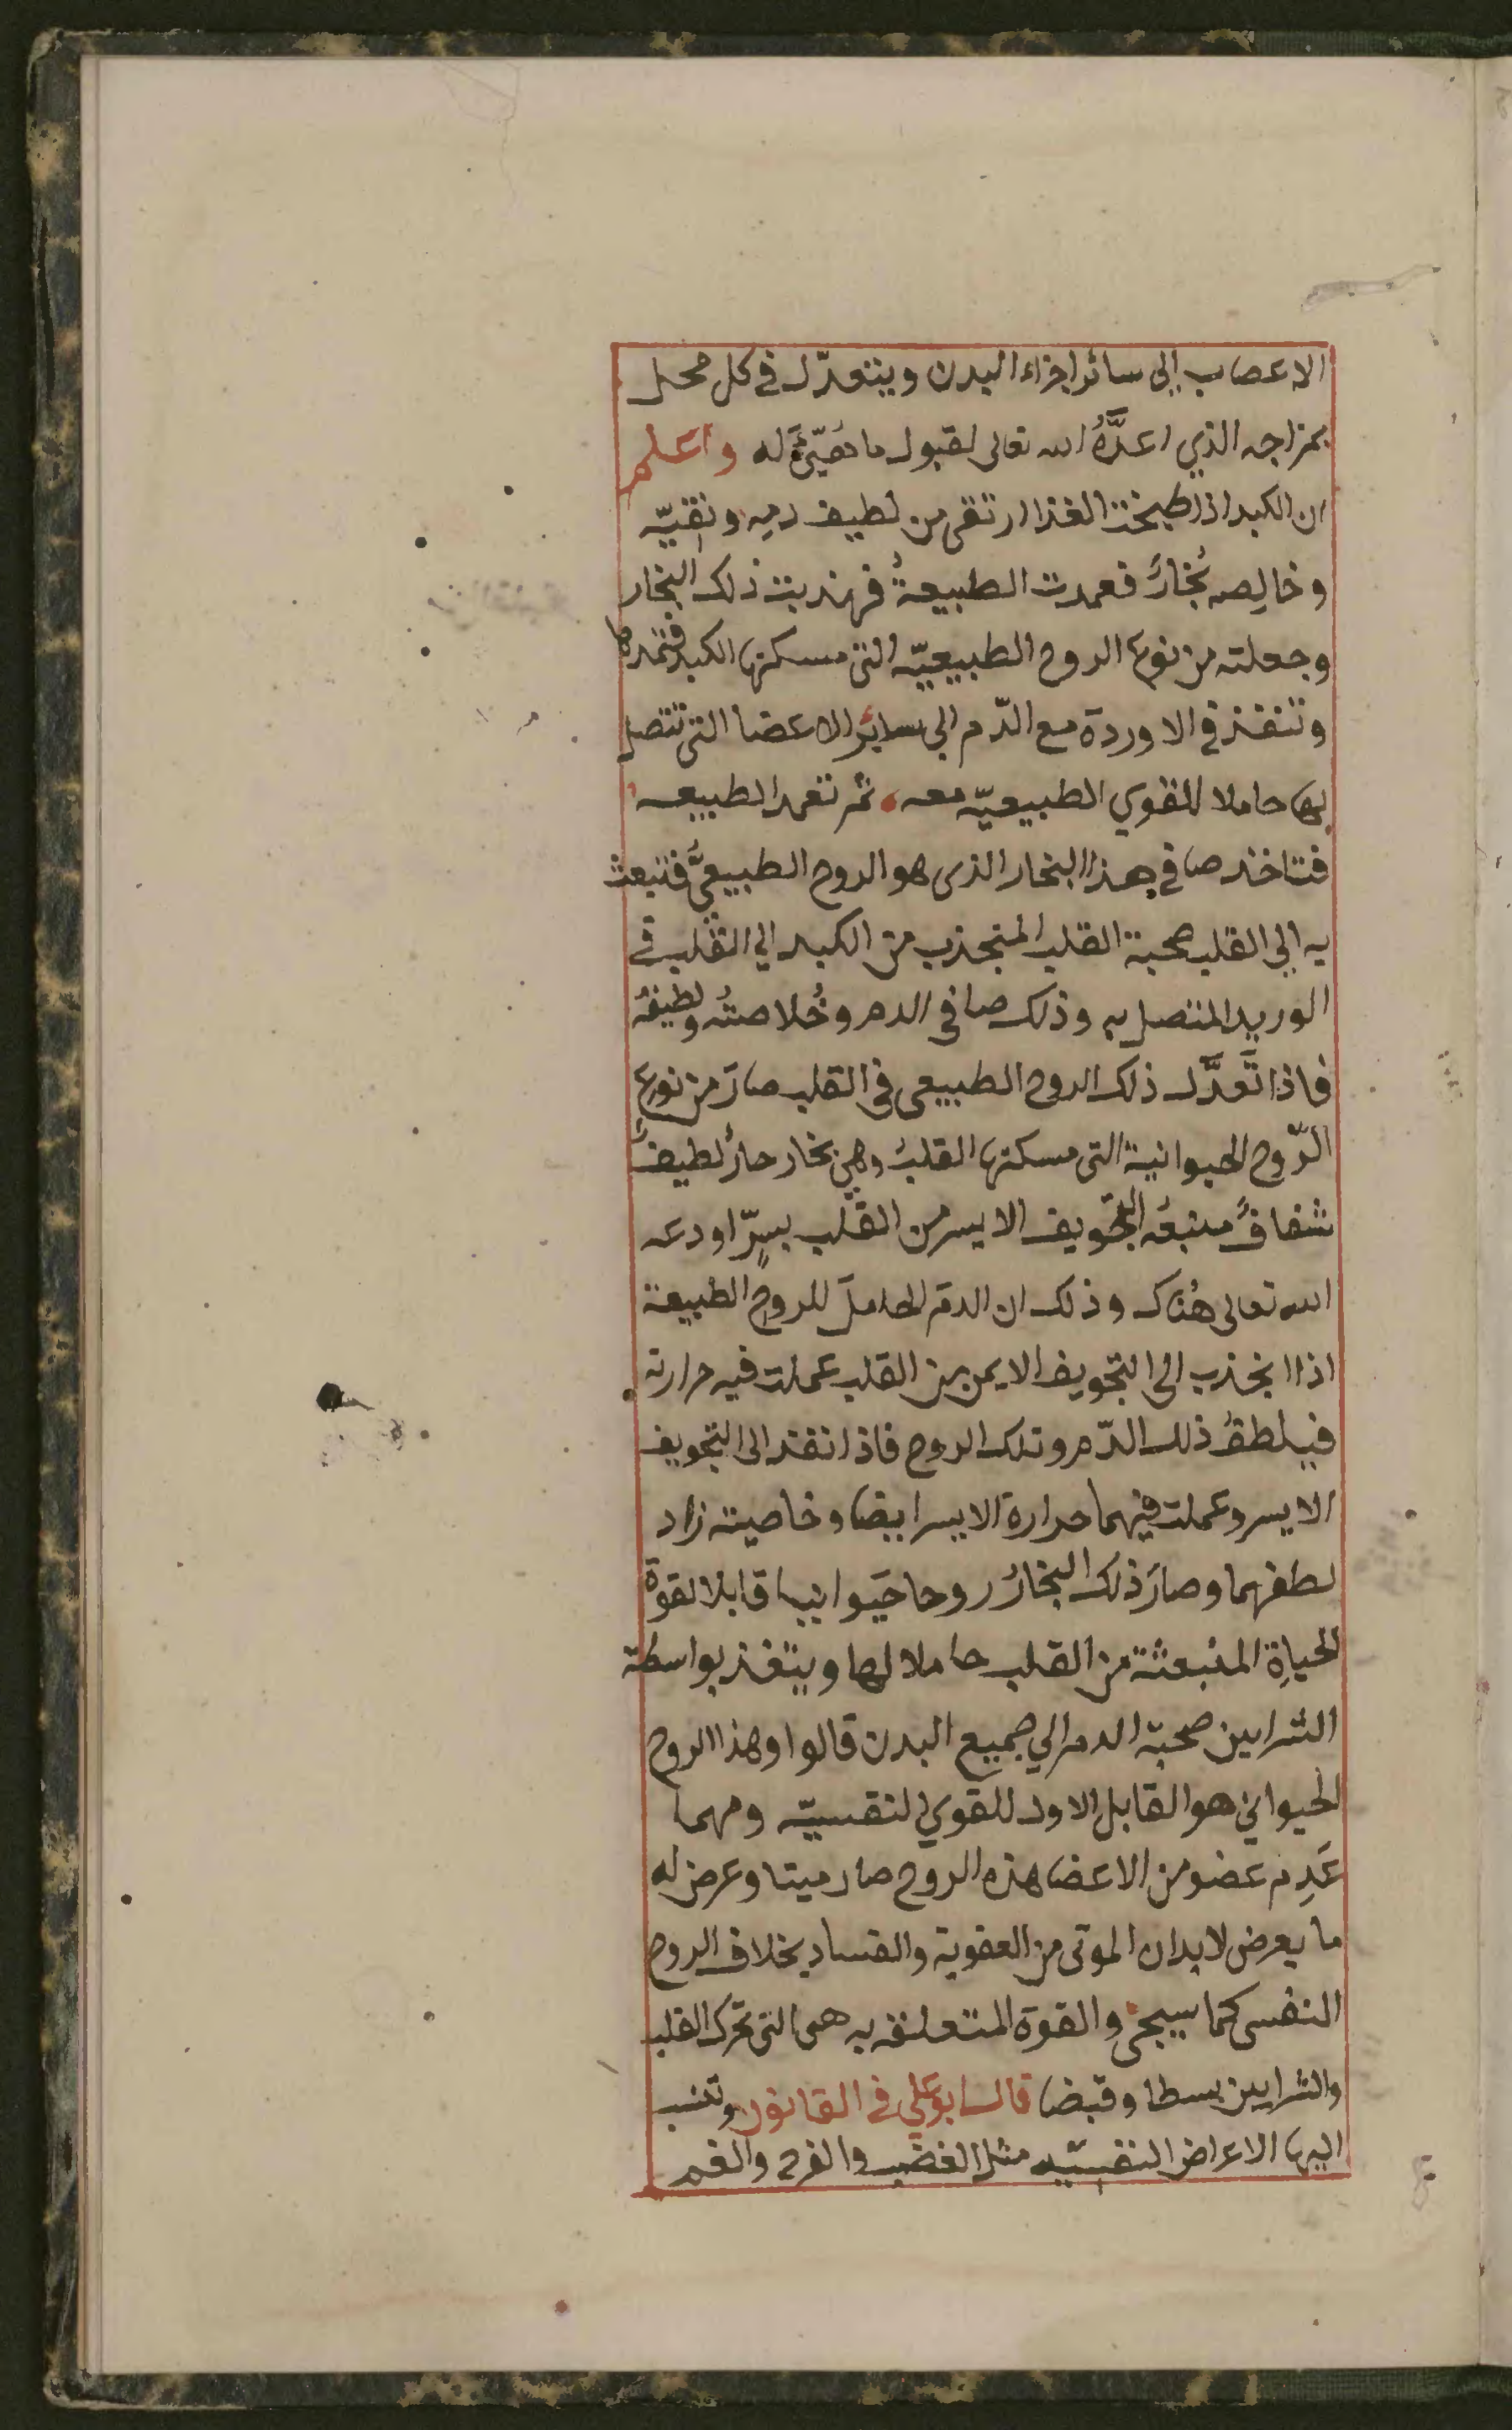 الاعصاب إلى سائر اجزاء البدن ويتعدّل في كل محل
بمزاجه الذي اعدَّهُ الله تعالى لقبول ما تهيّئَ له واعلم
ان الكبد اذا طبخت الغذا ارتقى من لطيف دمه ونقيّه
وخالِصه بُخارٌ فعمدت الطبيعةُ فهذبت ذلك البخار
وجعلته من نوع الروح الطبيعيّه التي مسكنها الكبد فتمدها
وتنفذ في الاوردة مع الدّم الى سائر الاعضا التي تتصل
بها حاملا للقوي الطبيعيّه معه ثم تعمد الطبيعه
فتاخذ صافي هذا البخار الذى هو الروح الطبيعىّ فتبعث
به الى القلب صحبة القلب المنجذب من الكبد الي القلب في
الوريد المتصل به وذلك صافي الدم وخُلاصتُه ولطيفهُ
فاذا تَعدَّل ذلك الروح الطبيعى في القلب صارَ من نوع
الرّوح الحيوانية التى مسكنها القلبُ وهي بخار حارٌ لطيفٌ
شفافٌ منبعُه التجويف الايسر من القلب بسِرّ اودعه
الله تعالى هُناك وذلك ان الدمَ الحاملَ للروحِ الطبيعة
اذا انجذب الى التجويف الايمن من القلب عملت فيه حرارته
فيلطفُ ذلك الدّم وتلك الروح فاذا نفذ الى التجويف
الايسر وعملت فيهما حرارة الايسر ايضا وخاصيته زاد
لطفهما وصارَ ذلك البخارُ روحا حَيوانيا قابلا لقوة
الحياةِ المنبعثة من القلب حاملا لها وينفذ بواسطة
الشرايين صحبة الدم الي جميع البدن قالوا وهذا الروح
الحيواني هو القابل الاول للقوي النفسيّه ومهما
عَدِم عضو من الاعضا هذه الروح صار ميتا وعرض له
ما يعرض لابدان الموتى من العفوية والفساد بخلاف الروح
النفسى كما سيجئ والقوة المتعلقه به هى التى تحرك القلب
والشرايين بسطا وقبضا قال ابو علي في القانون وتنسب
اليها الاعراض النفسيّه مثل الغضب والفرح والغم